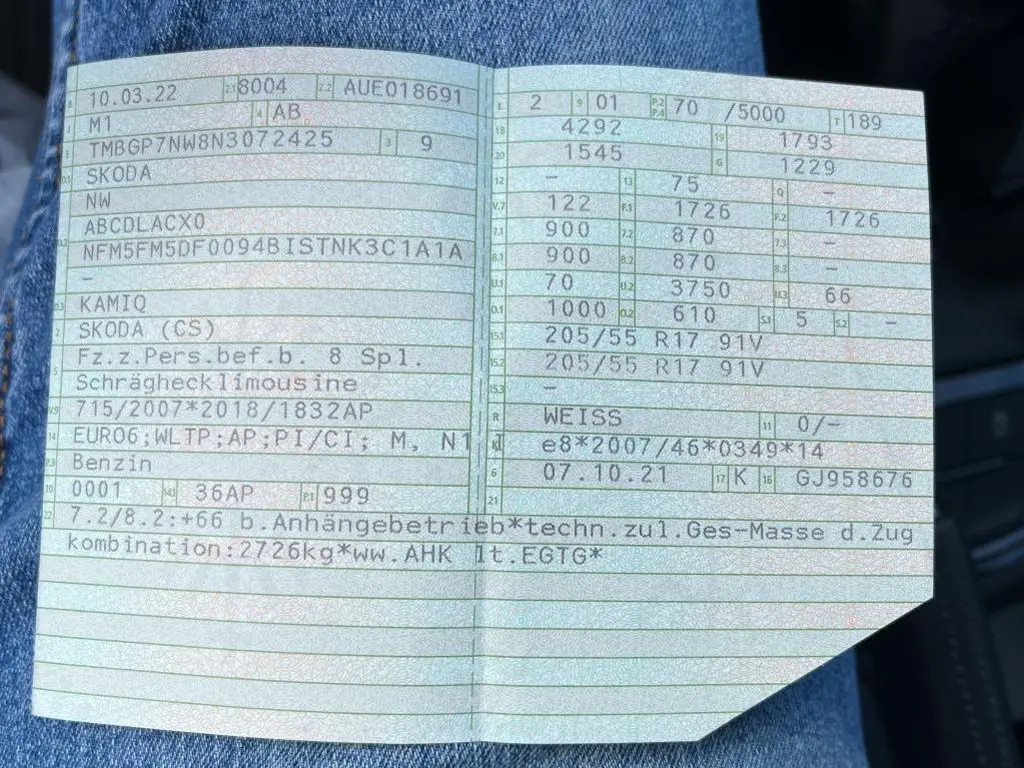 B 10.03.22 2.1 8004 2.2 AUE018691
J M1 4 AB
E TMBGP7NW8N3072425 3 9
D.1 SKODA
NW
ABCDLACX0
D.2 NFM5FM5DF0094BISTNK3C1A1A
–
D.3 KAMIQ
2 SKODA (CS)
5 Fz.z.Pers.bef.b. 8 Spl.
Schräghecklimousine
V.9 715/2007*2018/1832AP
14 EURO6;WLTP;AP;PI/CI; M, N1 I
P.3 Benzin
10 0001 14.1 36AP P.1 999
L 2 9 01 P.2 P.4 70 /5000 T 189
18 4292 19 1793
20 1545 G 1229
12 – 13 75 Q –
V.7 122 F.1 1726 F.2 1726
7.1 900 7.2 870 7.3 –
8.1 900 8.2 870 8.3 –
U.1 70 U.2 3750 U.3 66
O.1 1000 O.2 610 S.1 5 S.2 –
15.1 205/55 R17 91V
15.2 205/55 R17 91V
15.3 –
R WEISS 11 0/–
K e8*2007/46*0349*14
6 07.10.21 17 K 16 GJ958676
21
22 7.2/8.2:+66 b.Anhängebetrieb*techn.zul.Ges-Masse d.Zug
kombination:2726kg*ww.AHK lt.EGTG*